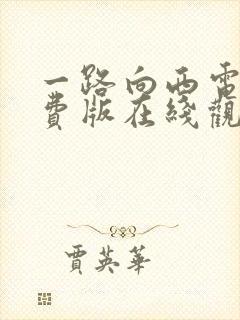 一路向西電
費版在綫觀
賈英華